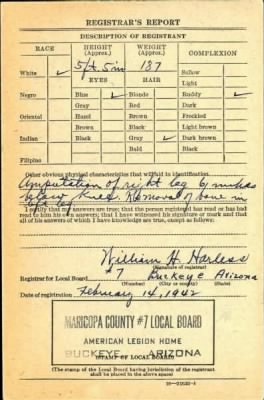 REGISTRAR'S REPORT
DESCRIPTION OF REGISTRANT
RACE HEIGHT (Approx.) WEIGHT (Approx.) COMPLEXION
White ✓ 5ft 5in 187 Sallow
EYES HAIR Light
Negro Blue ✓ Blonde Ruddy ✓
Gray Red Dark
Oriental Hazel Brown Freckled
Brown Black Light brown
Indian Black Gray ✓ Dark brown
Bald Black
Filipino
Other obvious physical characteristics that will aid in identification
Amputation of right leg 6 inches
below knee. Removal of bone in
I certify that my answers are true; that the person registered has read or has had
read to him his own answers; that I have witnessed his signature or mark and that
all of his answers of which I have knowledge are true, except as follows:
William H. Harless
(Signature of registrar)
Registrar for Local Board #7 Buckeye Arizona
(Number) (City or county) (State)
Date of registration February 14, 1942
MARICOPA COUNTY #7 LOCAL BOARD
AMERICAN LEGION HOME
BUCKEYE, ARIZONA
(STAMP OF LOCAL BOARD)
(The stamp of the Local Board having jurisdiction of the registrant
shall be placed in the above space)